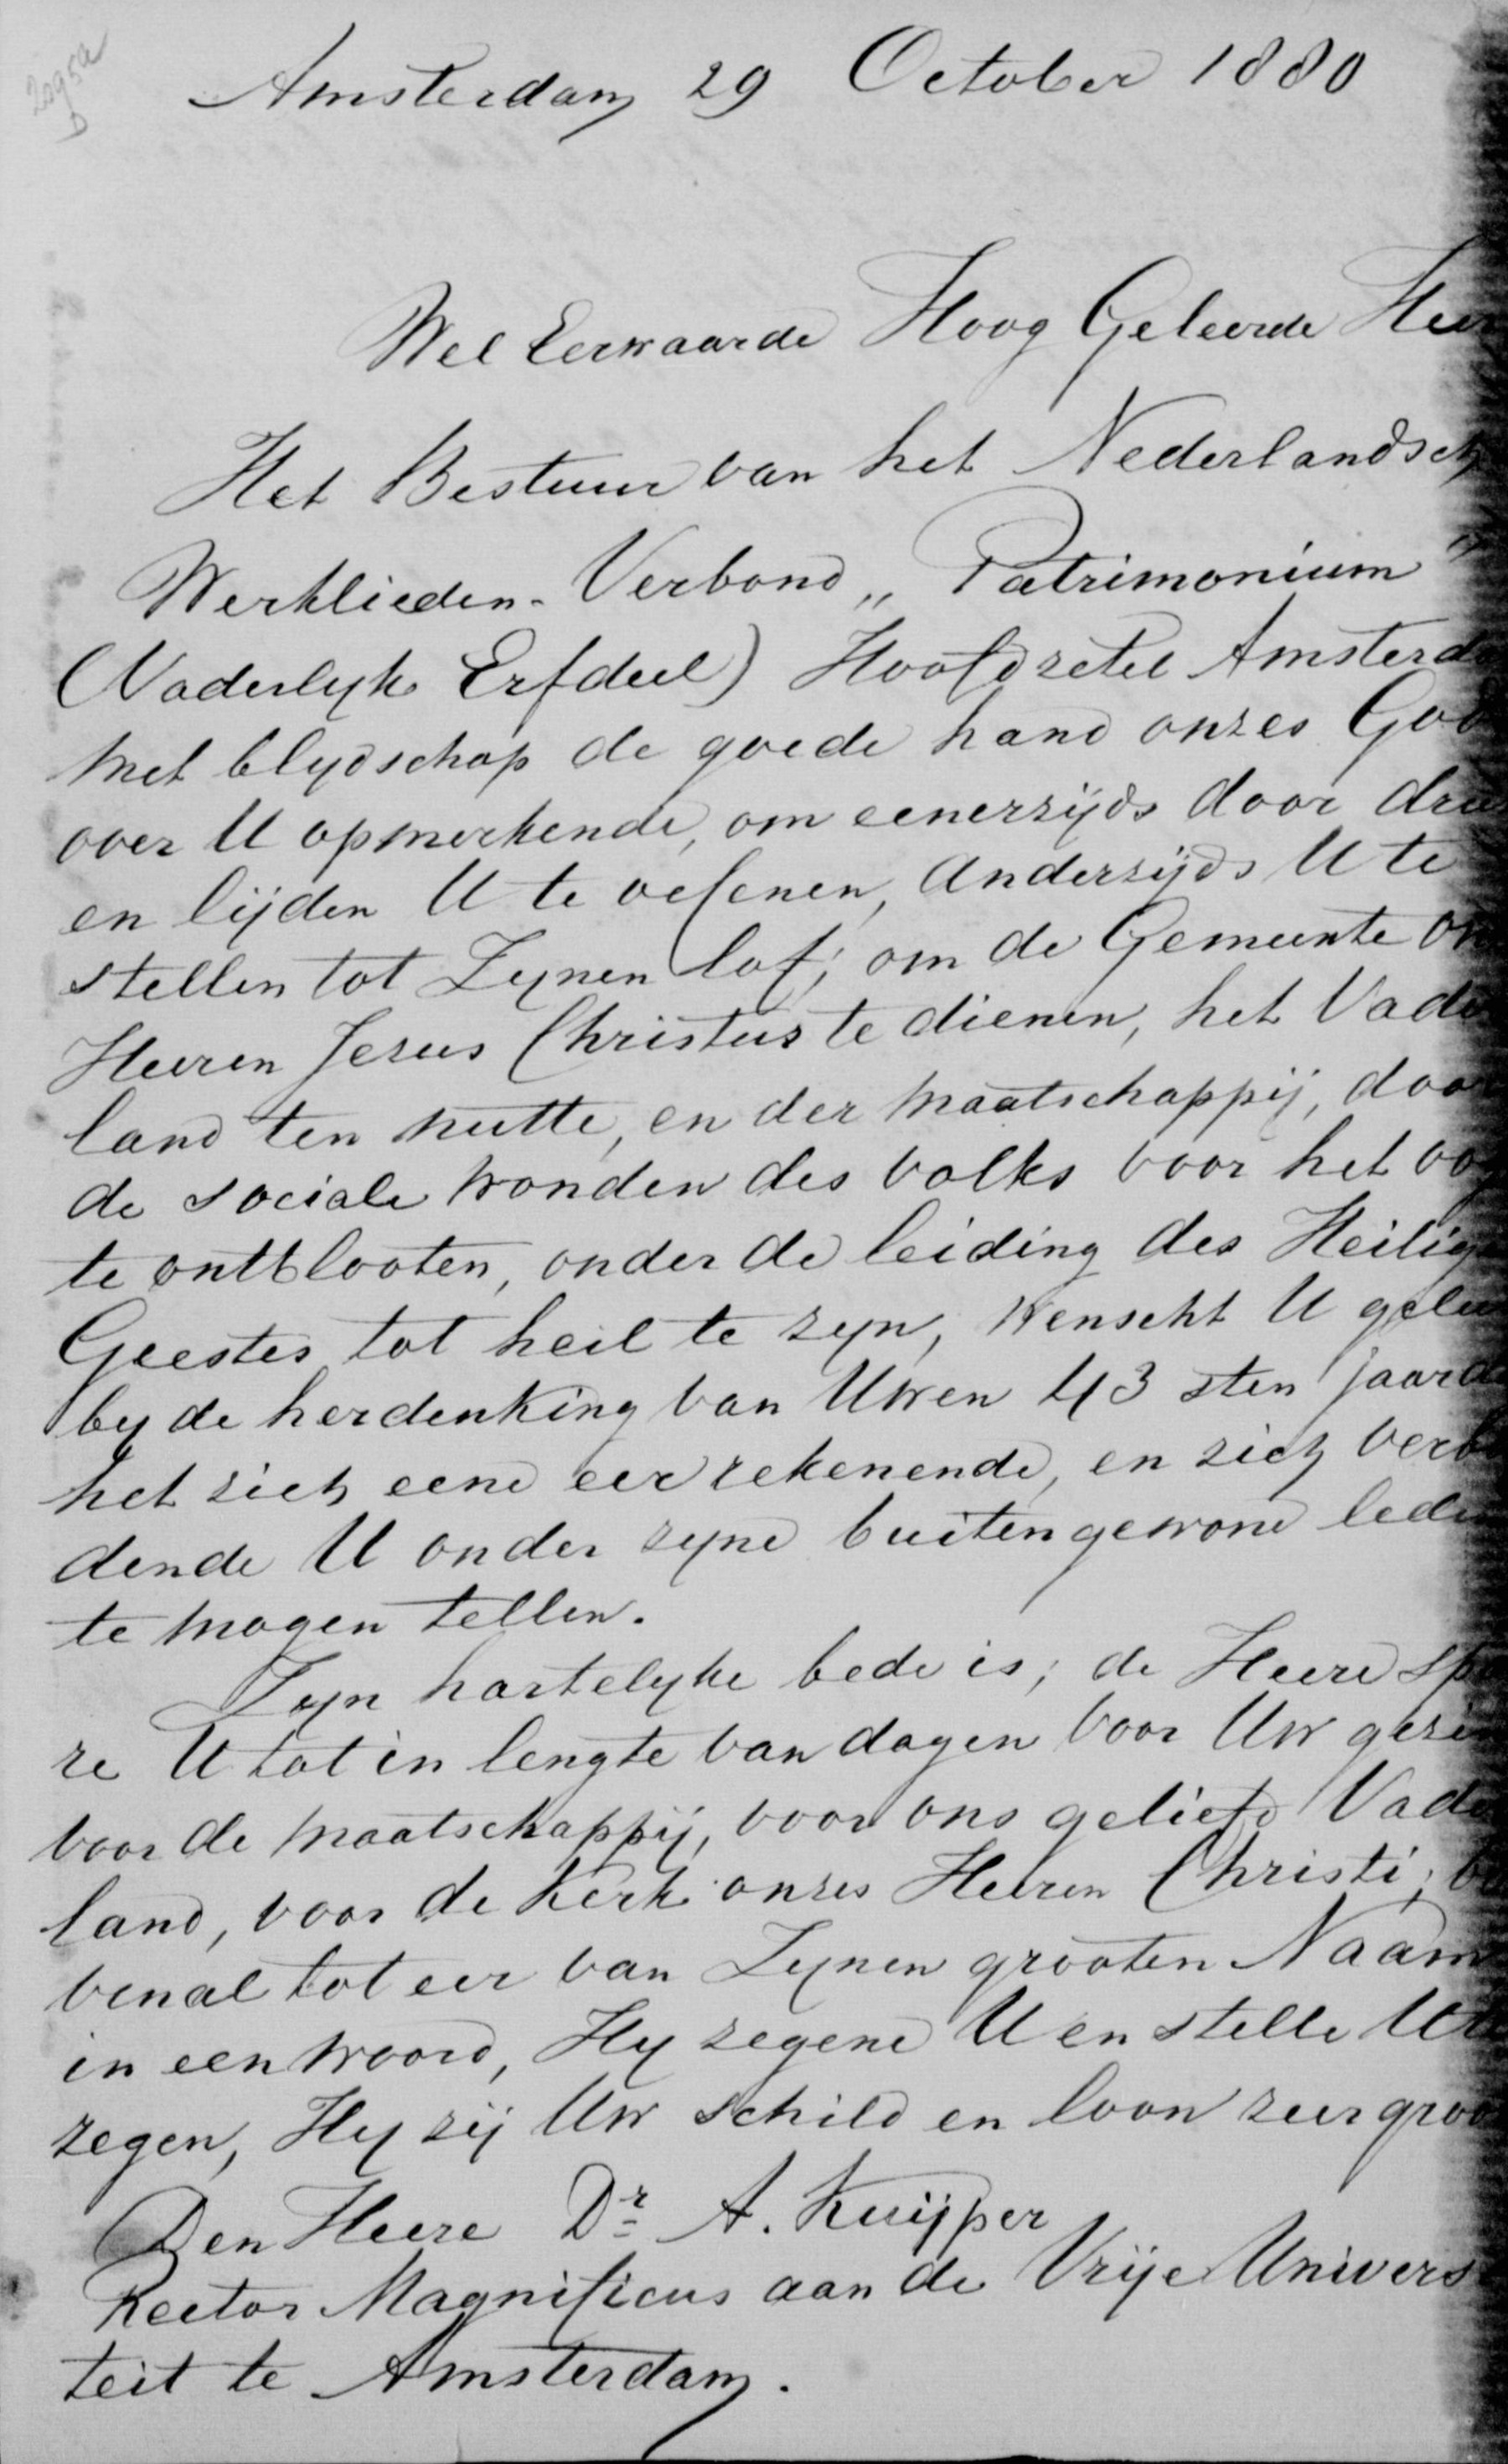 2095a
D
Amsterdam 29 October 1880
Wel Eerwaarde Hoog Geleerde Heer
Het Bestuur van het Nederlandsch
Werklieden-Verbond „Patrimonium"
(Vaderlyk Erfdeel) Hoofdzetel Amsterda
met blydschap de goede hand onzes God
over U opmerkende, om eenerzijds door dru
en lijden U te oefenen, Anderzijds U te
stellen tot Zynen lof; om de Gemeente on
Heeren Jezus Christus te dienen, het Vader
land ten nutte, en der maatschappij, door
de sociale wonden des volks voor het oog
te ontblooten, onder de leiding des Heilig
Geestes tot heil te zyn, wenscht U gelu
by de herdenking van Uwen 43 sten jaard
het zich eene eer rekenende, en zich verb
dende U onder zyne buitengewone lede
te mogen tellen.
Zyn hartelyke bede is; de Heere spa
re U tot in lengte van dagen voor Uw gezin
voor de maatschappij, voor ons geliefd Vader
land, voor de Kerk onzes Heeren Christi; bo
venal tot eer van Zynen grooten Naam
in een woord, Hy zegene U en stelle U te
zegen, Hy zij Uw schild en loon zeer groo
Den Heere Dr A. Kuijper
Rector Magnificus aan de Vrije Univers
teit te Amsterdam.